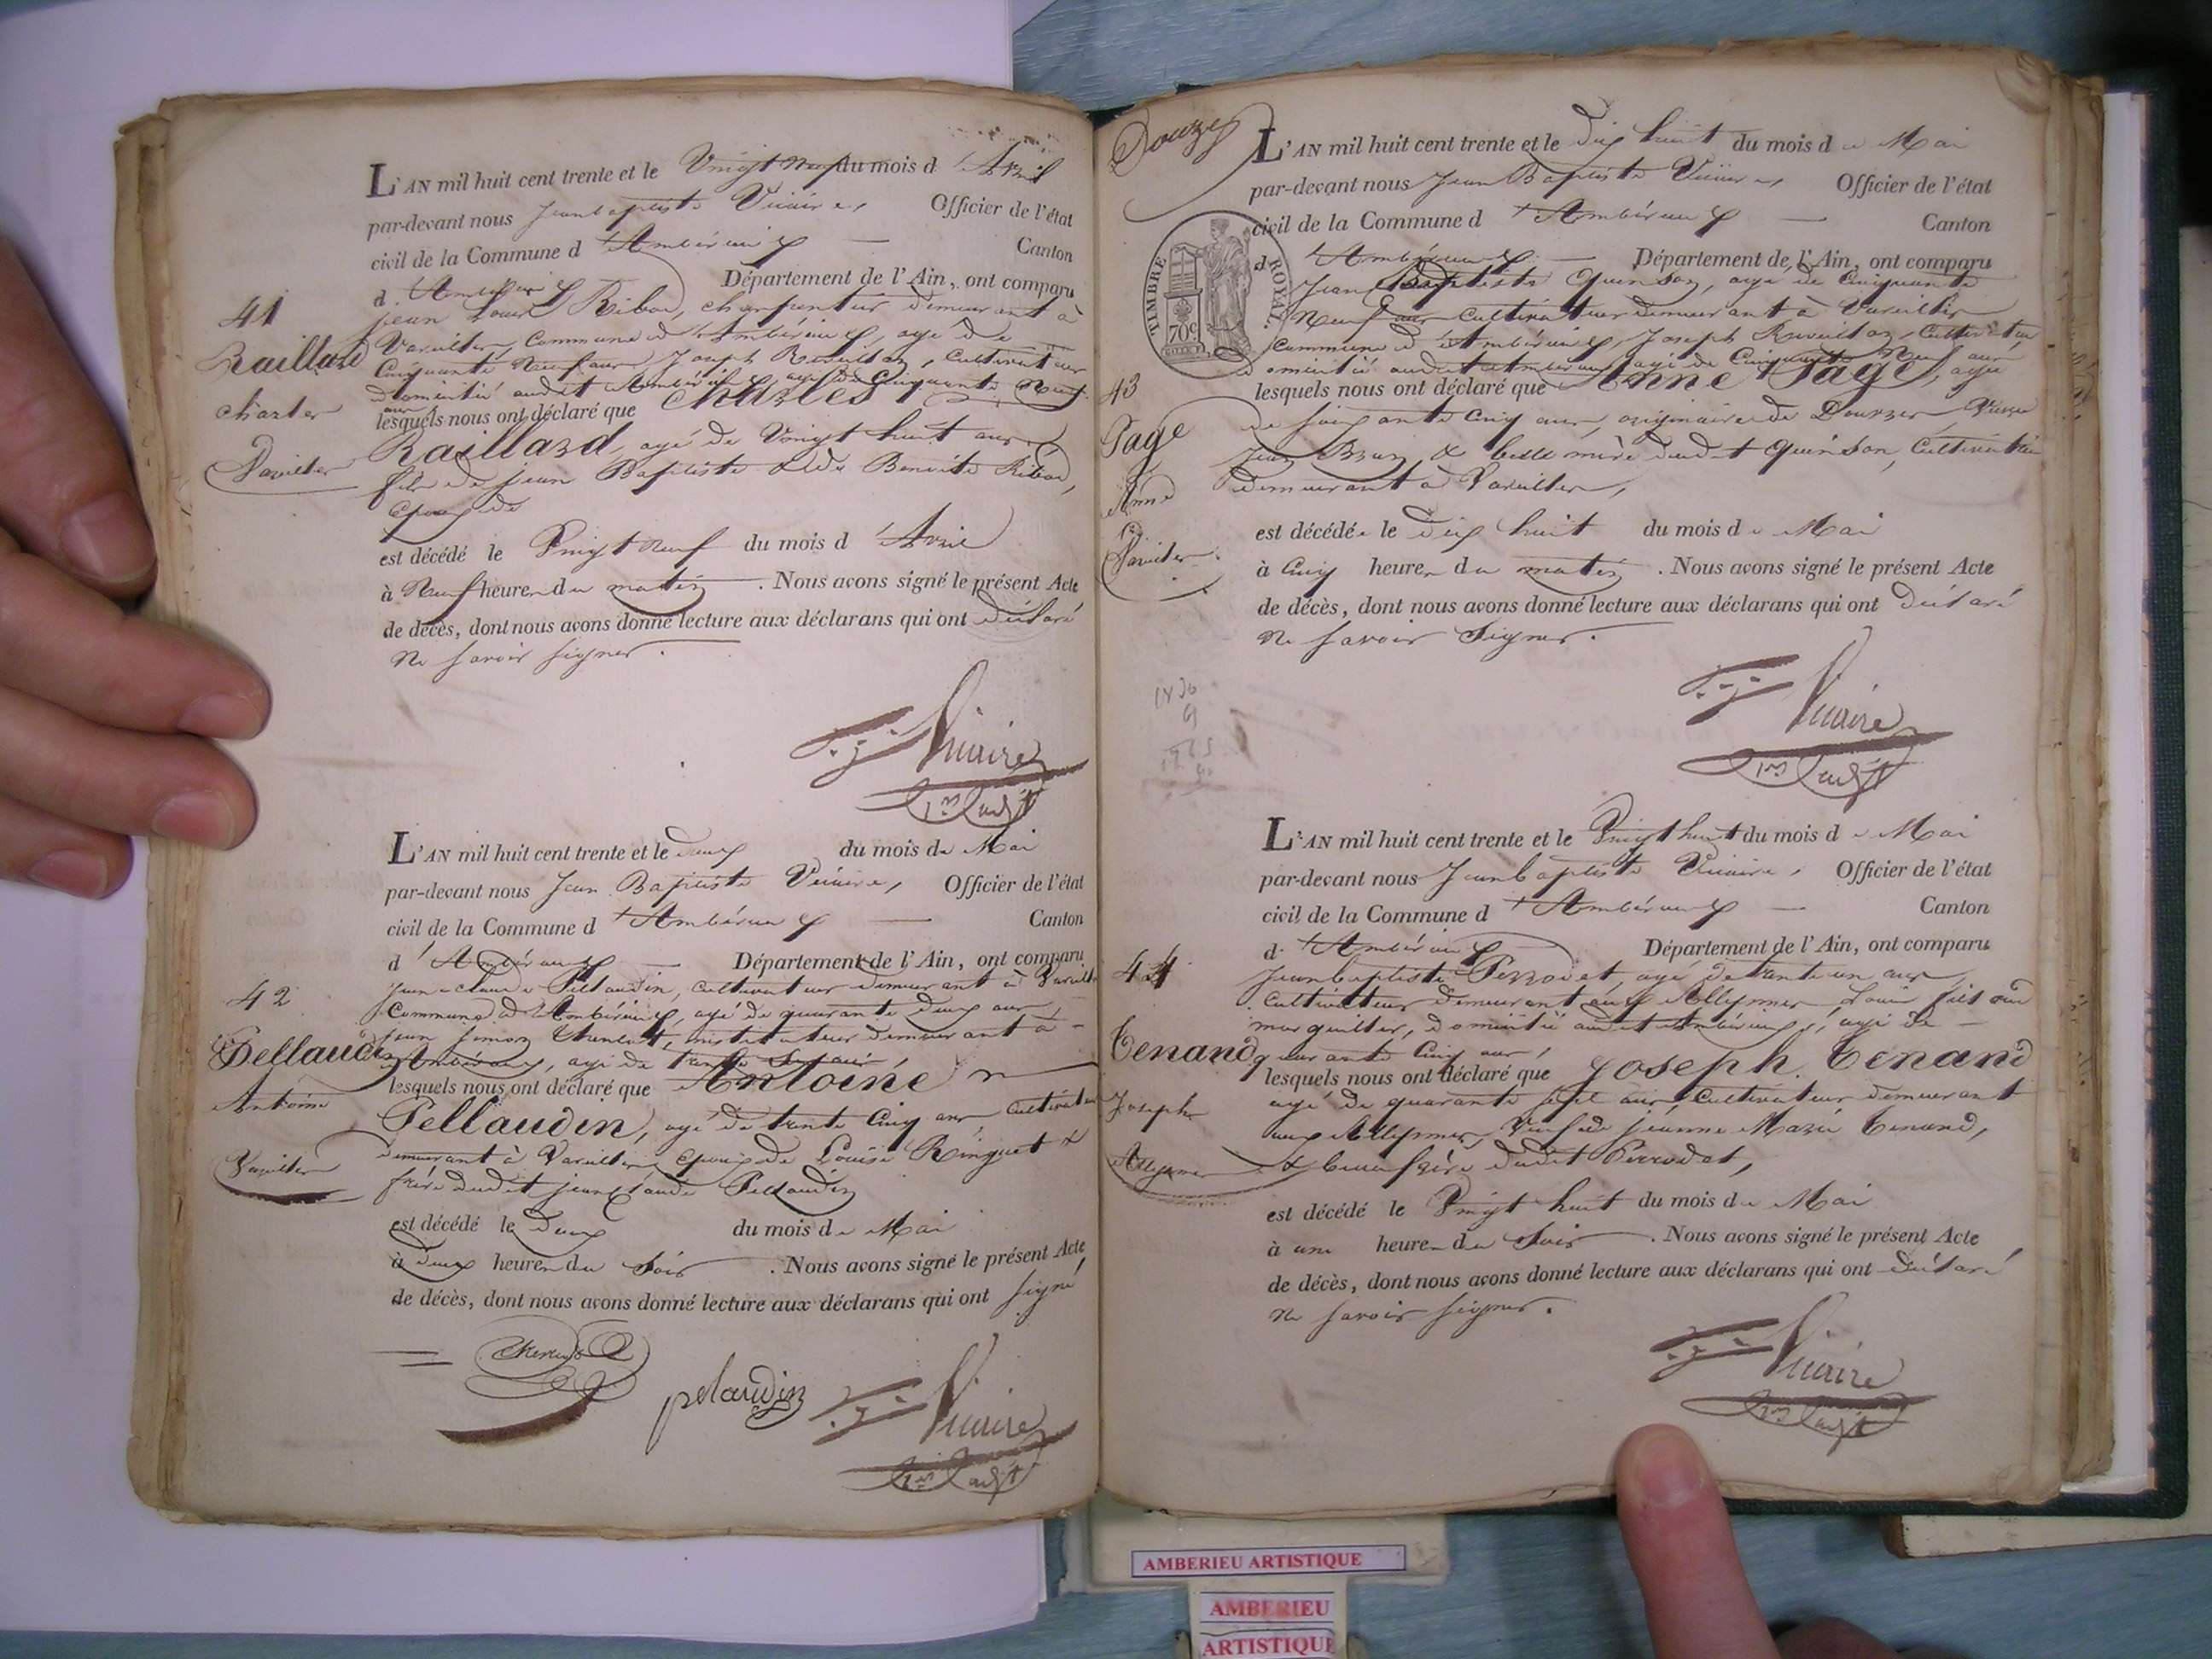 41
Raillard
Charles
Vareilles
L'AN mil huit cent trente et le Vingt neuf du mois d'Avril
par-devant nous Jean baptiste Vicaire, Officier de l'état
civil de la Commune d'Ambérieux — Canton
d'Ambérieux Département de l'Ain, ont comparu
jean Louis Ribod, charpentier demeurant à
Vareilles, Commune d'Ambérieux, agé de
Cinquante Neuf ans, Joseph Reveillon, Cultivateur
domicilié audit Ambérieux, agé de Cinquante Neuf
ans
lesquels nous ont déclaré que Charles
Raillard, agé de Vingt huit ans,
fils de jean Baptiste & de Benoite Ribod,
Epoux de
est décédé le Vingt neuf du mois d'Avril
à Neuf heures du matin. Nous avons signé le présent Acte
de décès, dont nous avons donné lecture aux déclarans qui ont déclaré
ne savoir signer.
Vicaire
1er adjt
42
Pellaudin
Antoine
Vareilles
L'AN mil huit cent trente et le deux du mois de Mai
par-devant nous Jean Baptiste Vicaire, Officier de l'état
civil de la Commune d'Ambérieux — Canton
d'Ambérieux — Département de l'Ain, ont comparu
jean claude Pellaudin, cultivateur demeurant à Vareilles
Commune d'Ambérieux, agé de quarante deux ans,
jean simon instituteur demeurant à
Ambérieux, agé de trente
lesquels nous ont déclaré que Antoine
Pellaudin, agé de trente Cinq ans, Cultivateur
demeurant à Vareilles, Epoux de Louise Ringuet &
frère dudit jean Claude Pellaudin
est décédé le deux du mois de Mai
à deux heures du Soir. Nous avons signé le présent Acte
de décès, dont nous avons donné lecture aux déclarans qui ont signé
pelaudin
Vicaire
1er adjt
Douze
TIMBRE ROYAL
70c
43
Page
Anne
Vareilles
L'AN mil huit cent trente et le dix huit du mois de Mai
par-devant nous Jean Baptiste Vicaire, Officier de l'état
civil de la Commune d'Ambérieux — Canton
d'Ambérieux — Département de l'Ain, ont comparu
Jean Baptiste Quinson, agé de Cinquante
Neuf ans Cultivateur demeurant à Vareilles
Commune d'Ambérieux, Joseph Reveillon, Cultivateur
domicilié audit Ambérieux, agé de Cinquante Neuf ans
lesquels nous ont déclaré que Anne Page, agée
de soixante Cinq ans, originaire de Veuve
Jean & belle mère dudit Quinson, Cultivatrice
demeurant à Vareilles,
est décédée le dix huit du mois de Mai
à Cinq heures du matin. Nous avons signé le présent Acte
de décès, dont nous avons donné lecture aux déclarans qui ont déclaré
ne savoir Signer.
1830
Vicaire
1er adjt
44
Tenand
Joseph
L'AN mil huit cent trente et le Vingt huit du mois de Mai
par-devant nous Jean baptiste Vicaire, Officier de l'état
civil de la Commune d'Ambérieux — Canton
d'Ambérieux Département de l'Ain, ont comparu
Jean baptiste Perrodet, agé de ans
Cultivateur demeurant aux Allymes, Louis
marguiller, domicilié audit Ambérieux, agé de —
quarante Cinq ans,
lesquels nous ont déclaré que Joseph Tenand
agé de quarante sept ans, Cultivateur demeurant
aux Allymes, Veuf de jeanne Marie Tenand,
& beau frère dudit Perrodet,
est décédé le Vingt huit du mois de Mai
à une heure du Soir. Nous avons signé le présent Acte
de décès, dont nous avons donné lecture aux déclarans qui ont déclaré
ne savoir signer.
Vicaire
1er adjt
AMBERIEU ARTISTIQUE
AMBERIEU
ARTISTIQUE